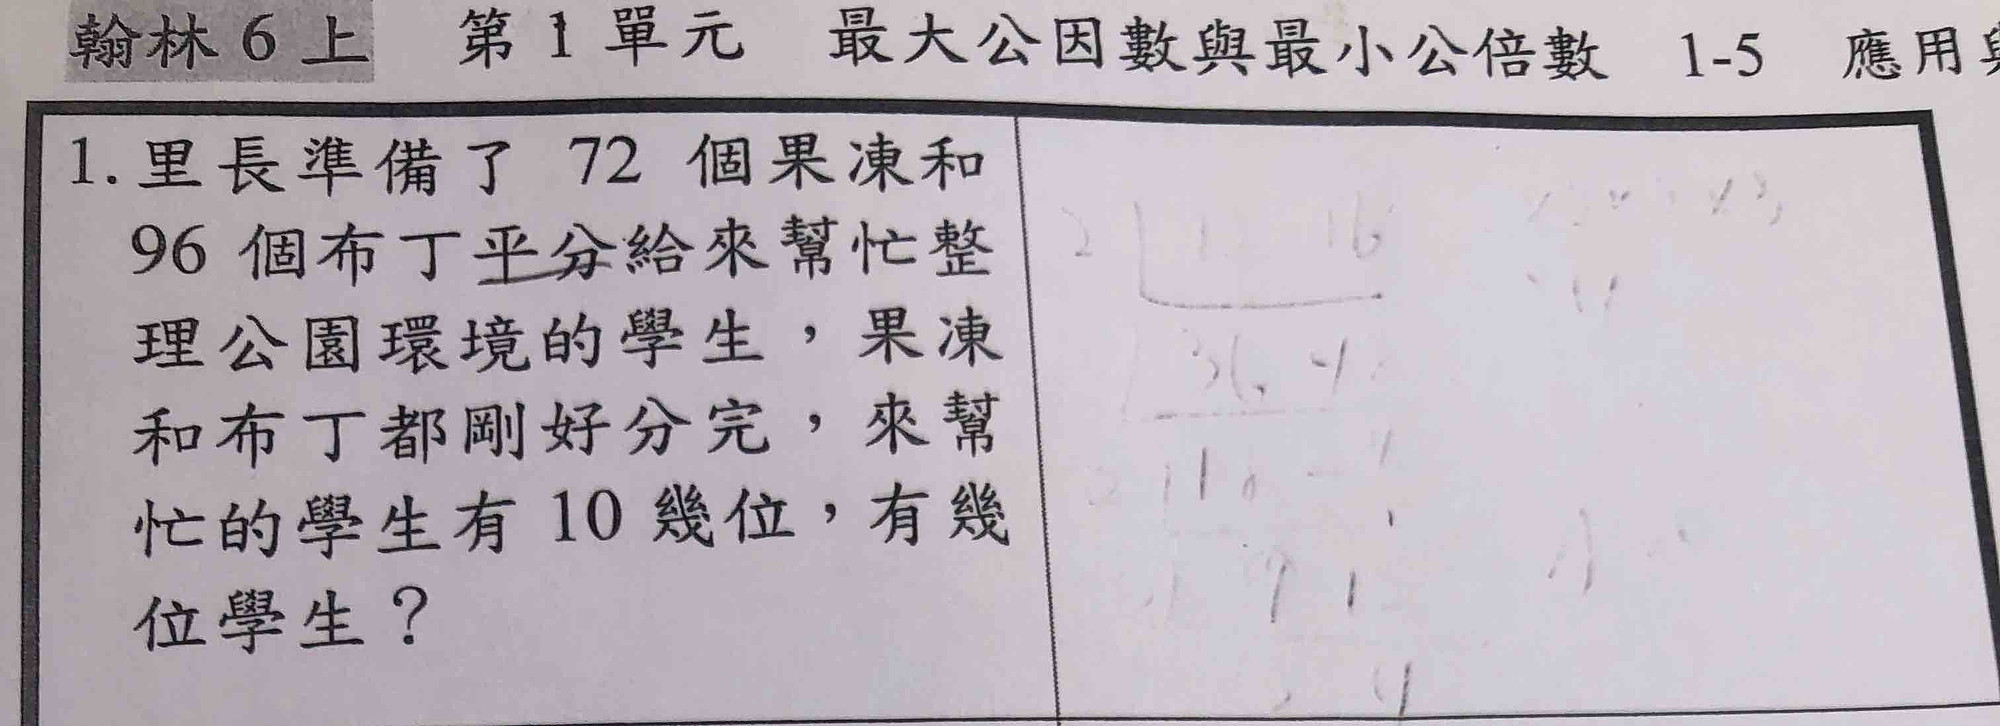 翰林 6 上 第 1 單元 最大公因數與最小公倍數 1-5 應用
1. 里長準備了 72 個果凍和
96 個布丁平分給來幫忙整
理公園環境的學生，果凍
和布丁都剛好分完，來幫
忙的學生有 10 幾位，有幾
位學生？